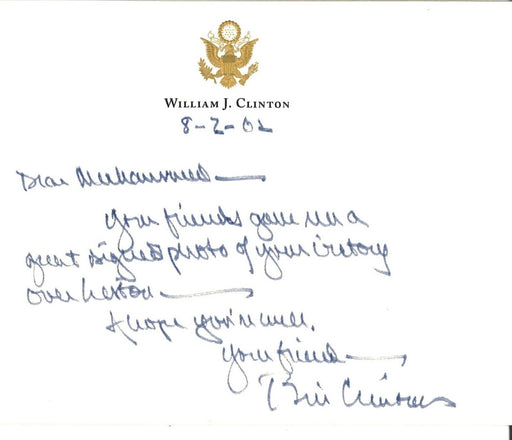 WILLIAM J. CLINTON
8-2-02
Dear Muhammed —
Your friends gave me a
great signed photo of your victory
over Liston —
I hope you're well.
Your friend —
Bill Clinton